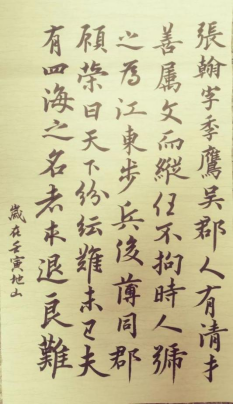 張翰字季鷹吳郡人有清才
善属文而縱任不拘時人號
之為江東步兵後謂同郡
顧榮曰天下紛紜難未已夫
有四海之名者求退良難
歲在壬寅地山